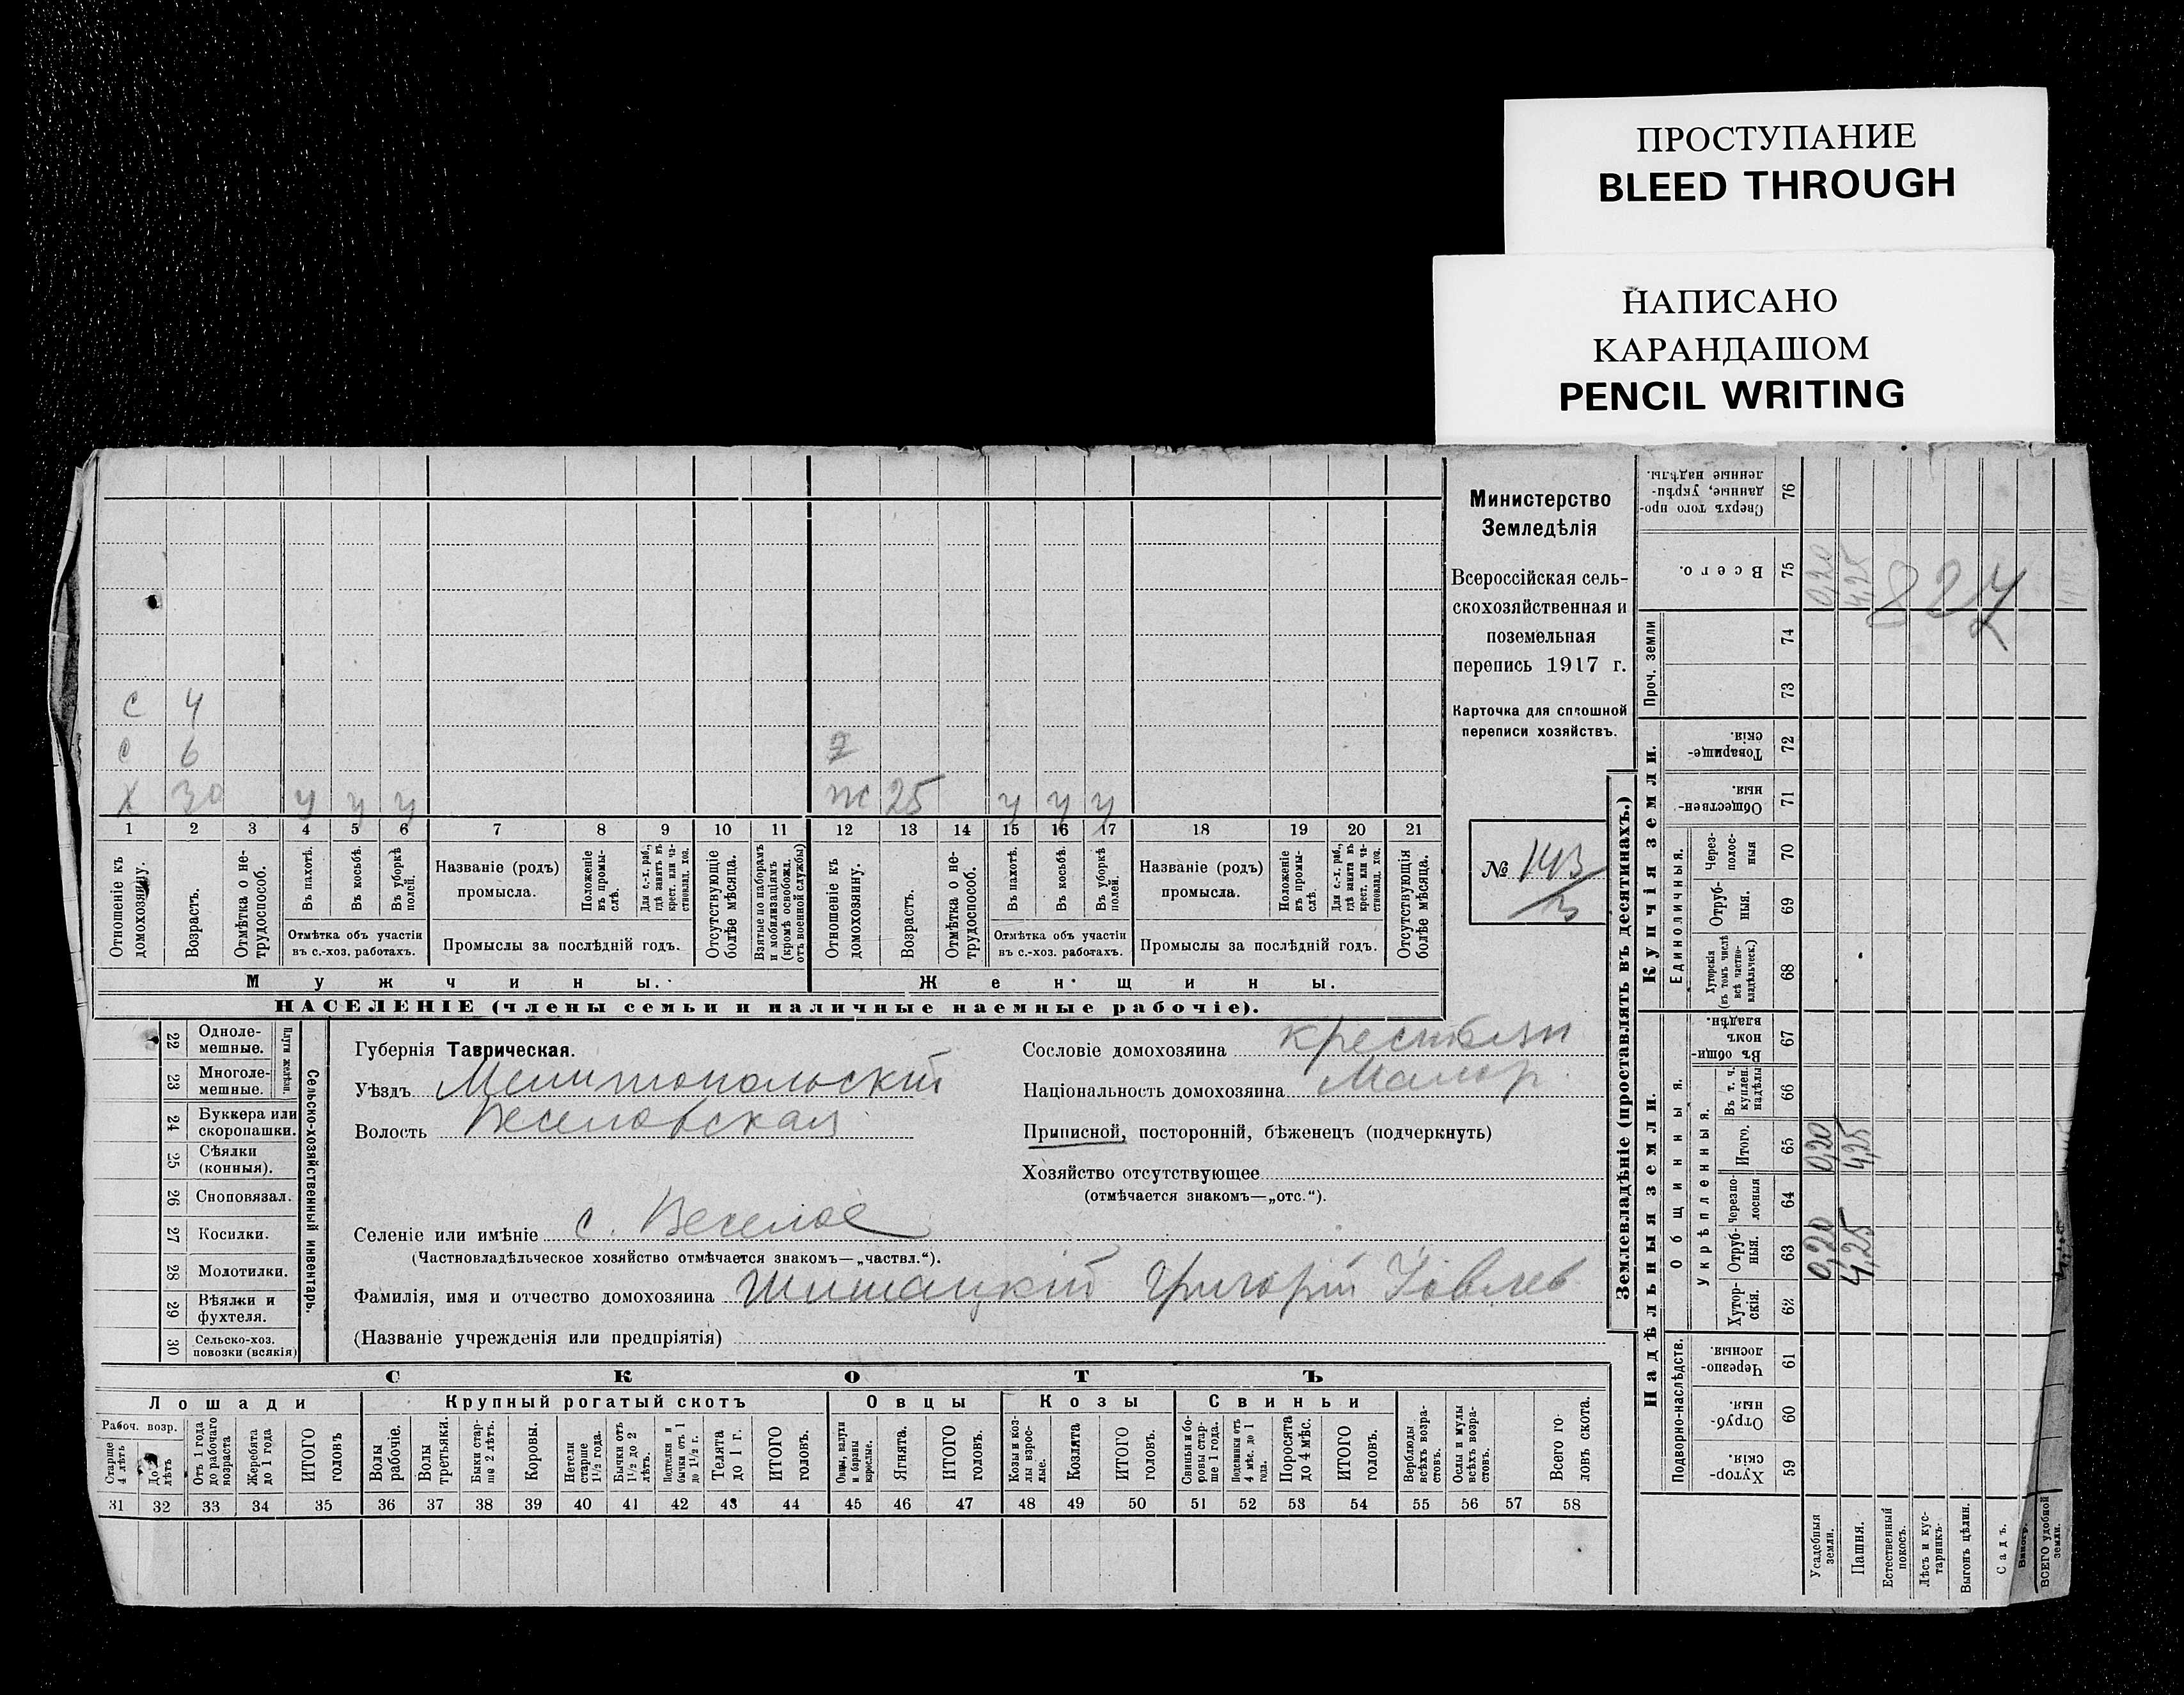 ПРОСТУПАНИЕ
BLEED THROUGH
НАПИСАНО
КАРАНДАШОМ
PENCIL WRITING
с 4
с 6
Х 30 у у у ж 25 у у у
1 2 3 4 5 6 7 8 9 10 11 12 13 14 15 16 17 18 19 20 21
Отношеніе къ домохозяину.
Возрастъ.
Отмѣтка о не-трудоспособ.
Въ пахотѣ.
Въ косьбѣ.
Въ уборкѣ полей.
Отмѣтка объ участіи
въ с.-хоз. работахъ.
Названіе (родъ)
промысла.
Положеніе въ промы-слѣ.
Для с.-х. раб., гдѣ занятъ въ крест. или ча-стновлад. хоз.
Промыслы за послѣдній годъ.
Отсутствующіе болѣе мѣсяца.
Взятые по наборамъ и мобилизаціямъ (кромѣ освобожд. отъ военной службы)
Отношеніе къ домохозяину.
Возрастъ.
Отмѣтка о не-трудоспособ.
Въ пахотѣ.
Въ косьбѣ.
Въ уборкѣ полей.
Отмѣтка объ участіи
въ с.-хоз. работахъ.
Названіе (родъ)
промысла.
Положеніе въ промы-слѣ.
Для с.-х. раб., гдѣ занята въ крест. или ча-стновлад. хоз.
Промыслы за послѣдній годъ.
Отсутствующія болѣе мѣсяца.
Мужчины. Женщины.
НАСЕЛЕНІЕ (члены семьи и наличные наемные рабочіе).
Министерство
Земледѣлія
Всероссійская сель-
скохозяйственная и
поземельная
перепись 1917 г.
Карточка для сплошной
переписи хозяйствъ.
№ 143
3
Сельско-хозяйственный инвентарь.
Плуги желѣзн.
22 Одноле-
мешные.
23 Многоле-
мешные.
24 Буккера или
скоропашки.
25 Сѣялки
(конныя).
26 Сноповязал.
27 Косилки.
28 Молотилки.
29 Вѣялки и
фухтеля.
30 Сельско-хоз.
повозки (всякія)
Губернія Таврическая.
Уѣздъ Мелитопольскій
Волость Веселовская
Селеніе или имѣніе с. Веселое
(Частновладѣльческое хозяйство отмѣчается знакомъ—„частвл.“).
Фамилія, имя и отчество домохозяина Шишацкій Григорій Іовлев
(Названіе учрежденія или предпріятія)
Сословіе домохозяина крестьян
Національность домохозяина Малор.
Приписной, посторонній, бѣженецъ (подчеркнуть)
Хозяйство отсутствующее
(отмѣчается знакомъ—„отс.“).
СКОТЪ
Лошади Крупный рогатый скотъ Овцы Козы Свиньи
Рабоч. возр.
Старше 4 лѣтъ
До 4 лѣтъ
Отъ 1 года до рабочаго возраста
Жеребята до 1 года
ИТОГО головъ
Волы рабочіе.
Волы третьяки.
Быки стар-ше 2 лѣтъ.
Коровы.
Нетели старше 1½ года.
Бычки отъ 1½ до 2 лѣтъ.
Подтелки и бычки отъ 1 до 1½ г.
Телята до 1 г.
ИТОГО головъ.
Овцы, валухи и бараны взрослые.
Ягнята.
ИТОГО головъ.
Козы и коз-лы взрос-лые.
Козлята
ИТОГО головъ.
Свиньи и бо-ровы стар-ше 1 года.
Подсвинки отъ 4 мѣс. до 1 года.
Поросята до 4 мѣс.
ИТОГО головъ.
Верблюды всѣхъ возра-стовъ.
Ослы и мулы всѣхъ возра-стовъ.
Всего го-ловъ скота.
31 32 33 34 35 36 37 38 39 40 41 42 43 44 45 46 47 48 49 50 51 52 53 54 55 56 57 58
Землевладѣніе (проставлять въ десятинахъ.)
Надѣльныя земли.
Купчія земли.
Проч. земли
Подворно-наслѣдств.
Общинныя.
Укрѣпленныя.
Единоличныя.
Хутор-скія. 59
Отруб-ныя. 60
Черезпо-лосныя. 61
Хутор-скія. 62
Отруб-ныя. 63
Черезпо-лосныя 64
Итого. 65
Въ т. ч. куплен. надѣлы 66
Въ общин-номъ владѣн. 67
Хуторскія (въ томъ числѣ всѣ частно-владѣльческ.) 68
Отруб-ныя. 69
Через-полос-ныя 70
Обществен-ныя. 71
Товарище-скія. 72
73
74
Всего. 75
Сверхъ того про-данные, укрѣп-ленные надѣлы. 76
Усадебныя земли. 0,20 0,20 0,20
Пашня. 4,25 4,25 4,25
Естественный покосъ.
Лѣсъ и кус-тарникъ.
Выгонъ цѣлин.
Садъ.
Виногр.
ВСЕГО удобной земли.
827